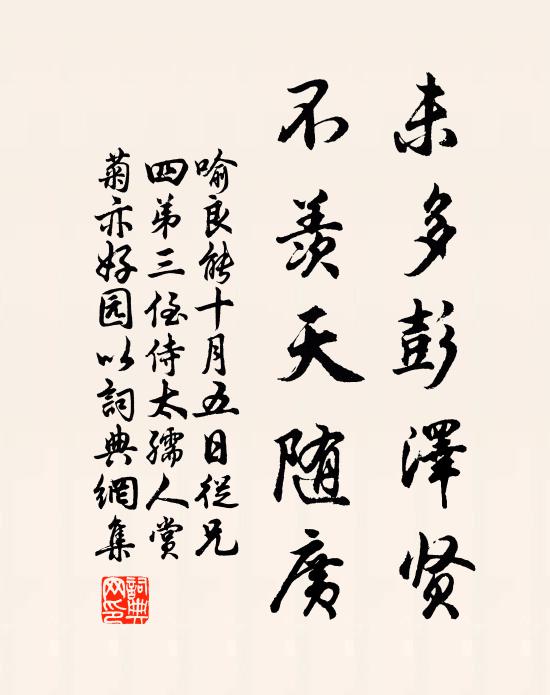 未多彭澤贤
不羡天随廣
喻良能十月五日從兄
四弟三侄侍太孺人賞
菊亦好园以詞典網集
詞典
网印